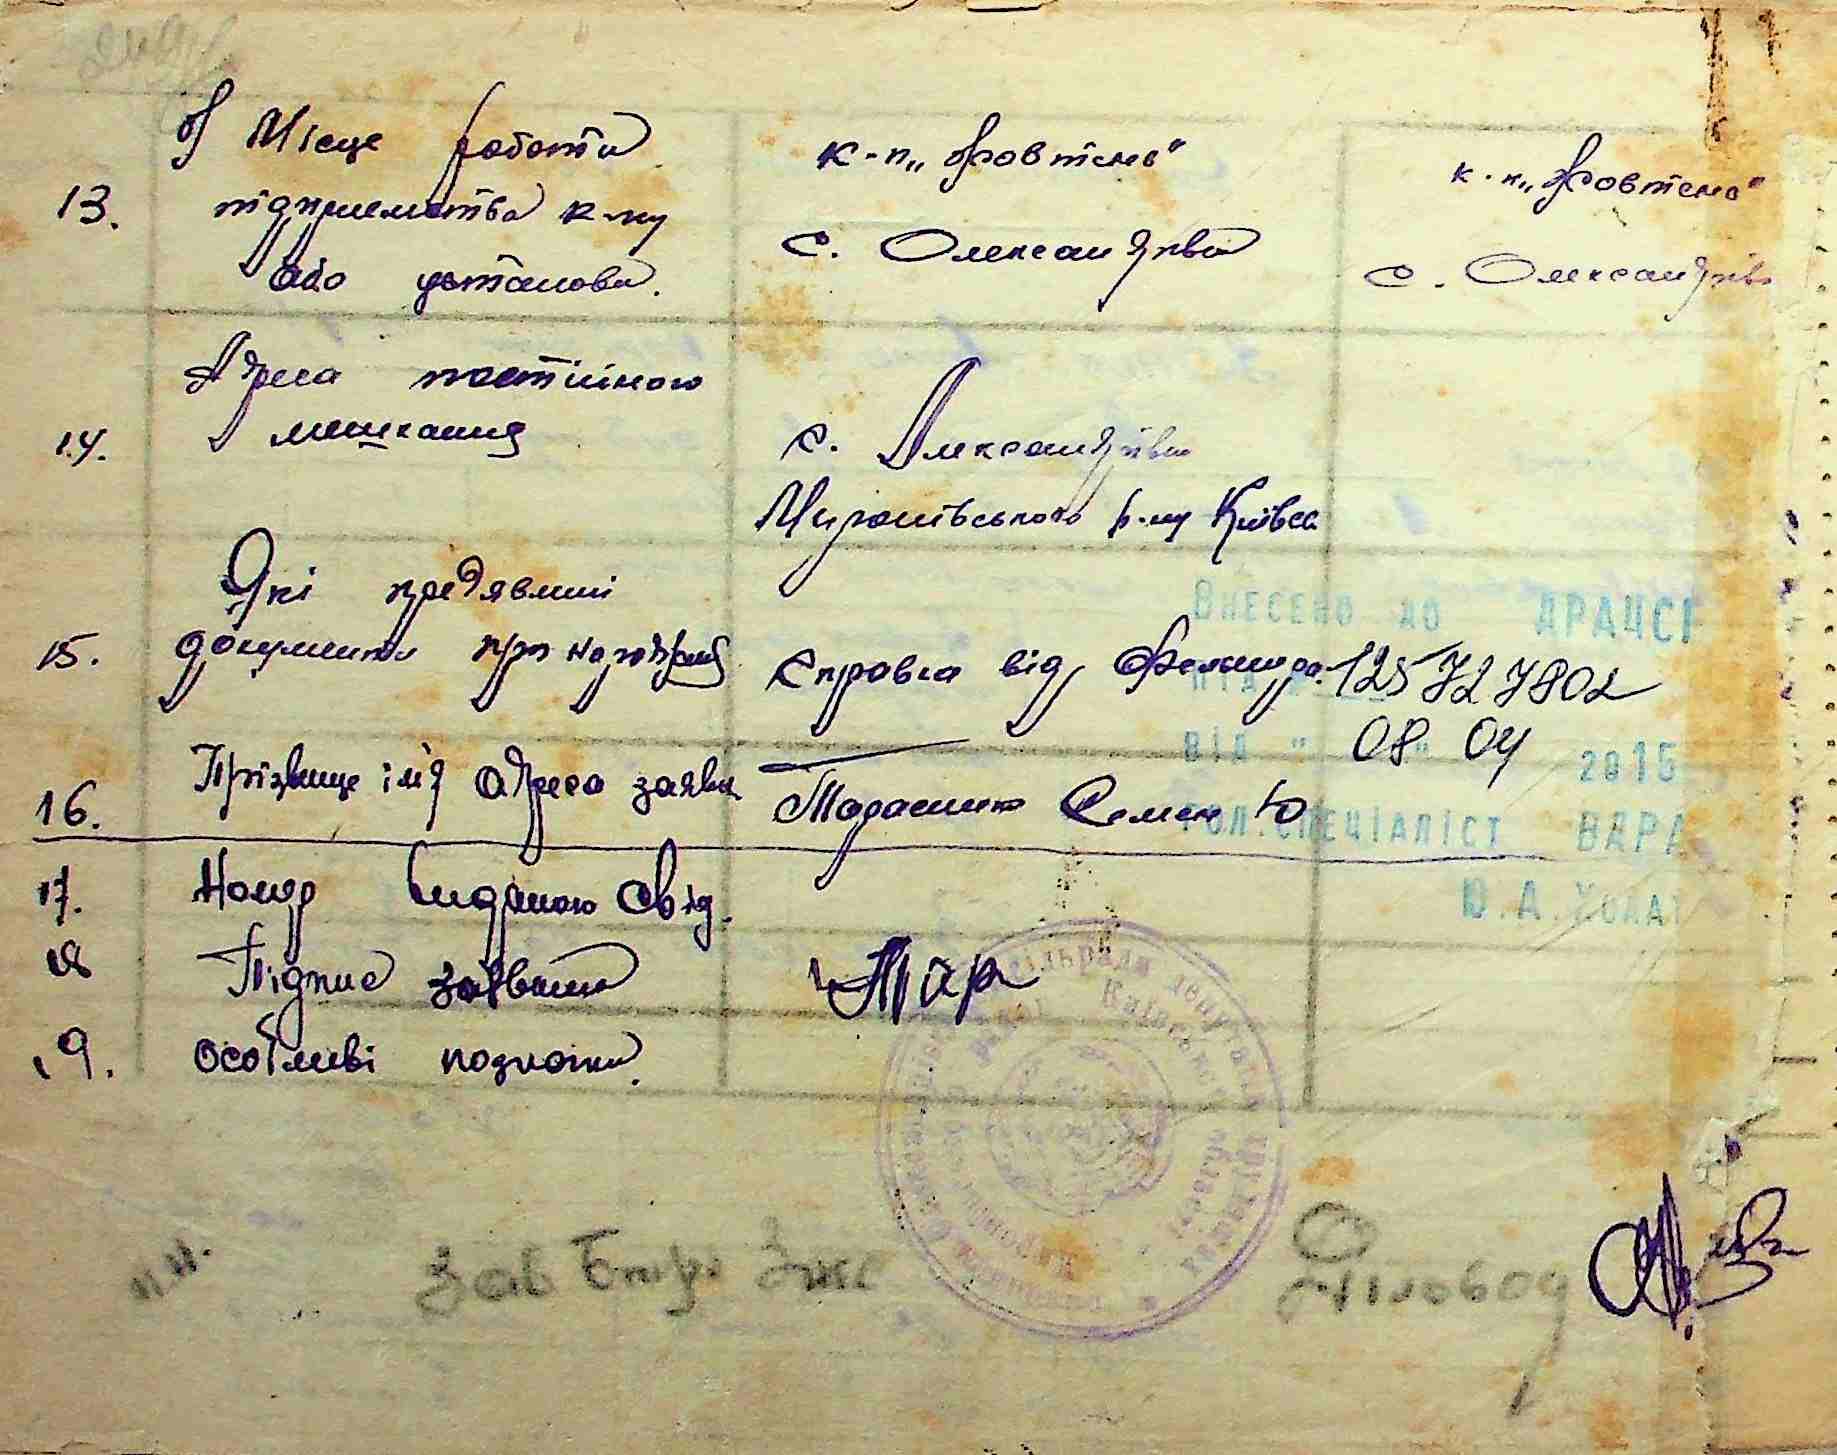 б) Місце роботи
підприємства к-пу
або установи.
13.
к-п „Жовтень"
с. Олександрівка
к-п „Жовтень"
с. Олександрівка
14.
Адреса постійного
мешкання
с. Олександрівка
Миронівського р-ну Київськ
15.
Які предявлені
документи про народження
Справка від Фельшера
16.
Прізвище імя адреса заявн
Тарасенко Семен Ю
17.
Номер виданого свід.
18
Підпис заявника
Тар
19.
Особливі позначки
ВНЕСЕНО ДО ДРАЦСГ
125727802
ВІД " 08 " 04 2015
ГОЛ.СПЕЦІАЛІСТ ВДРА
Ю.А.
Зав бюро Загс
Діловод